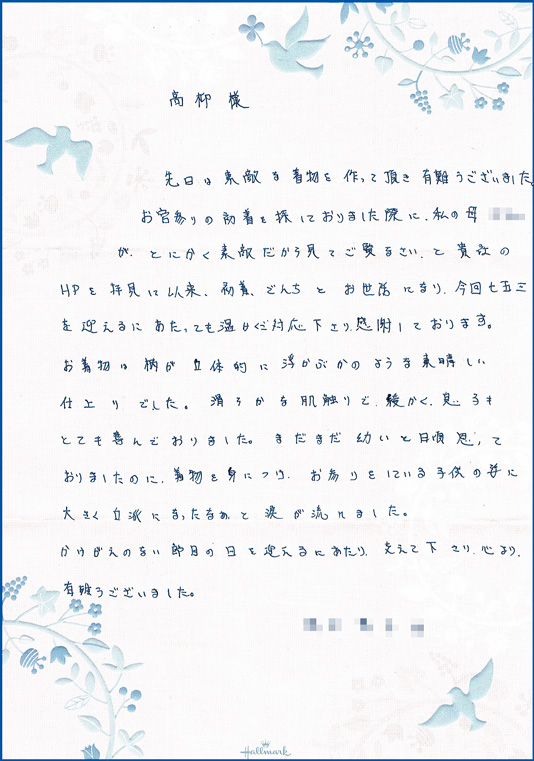 高柳 様
先日は 素敵な着物を作って頂き 有難うございました
お宮参りの初着を探しておりました際に、私の母
が、とにかく素敵だから見てご覧なさい、と貴社の
HPを拝見して以来、初着、どんちと お世話になり、今回七五三
を迎えるにあたっても温かくご対応下さり、感謝しております。
お着物は 柄が立体的に浮かぶかのような素晴しい
仕上りでした。滑らかな肌触りで、緩かく、息子も
とても喜んでおりました。まだまだ 幼いと日頃 思って
おりましたのに、着物を身につけ、お参りをしている子供の姿に
大きく立派になったなぁ、と涙が流れました。
かけがえのない 節目の日を迎えるにあたり、支えて下さり、心より、
有難うございました。
Hallmark